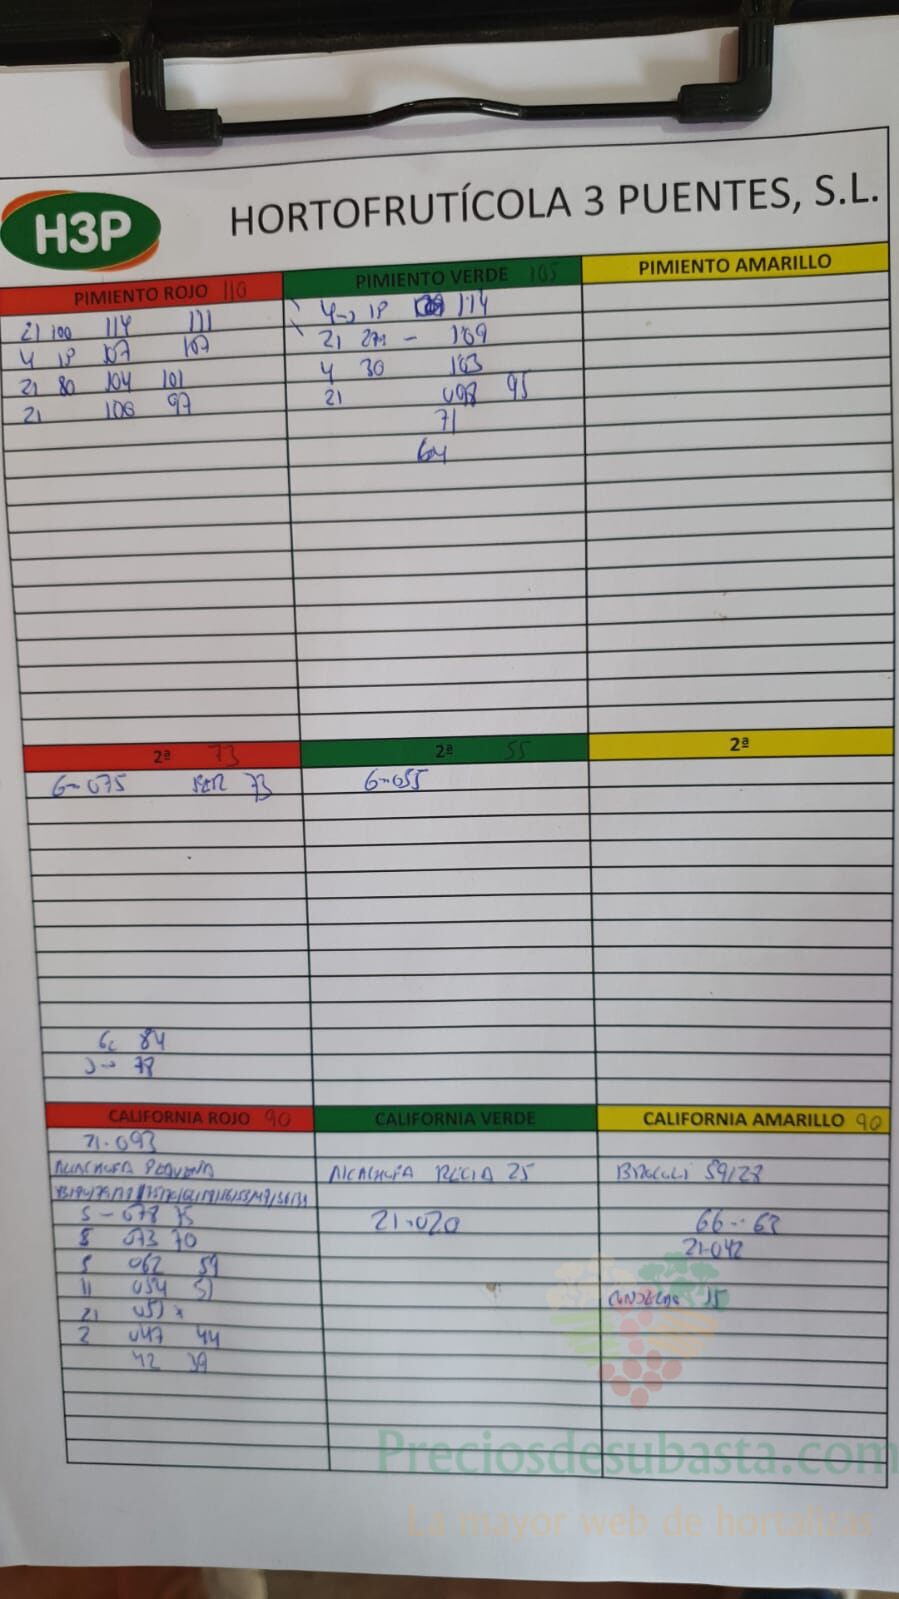 H3P HORTOFRUTÍCOLA 3 PUENTES, S.L.
PIMIENTO ROJO 110
21 100 114 111
4 18 107 107
21 80 104 101
21 100 97
PIMIENTO VERDE 105
4-> 18 114
21 271 - 109
4 30 103
21 098 95
71
64
PIMIENTO AMARILLO
2ª 73
G- 075 73
6 84
3-> 78
2ª 55
G- 055
2ª
CALIFORNIA ROJO 90
21-093
ALCACHOFA PEQUEÑA
5 - 078 75
8 073 70
5 062 59
11 054 51
21 051 x
2 047 44
42 39
CALIFORNIA VERDE
ALCACHOFA RECIA 25
21-020
CALIFORNIA AMARILLO 90
BROCOLI 59/28
66 - 62
21-042
15
Preciosdesubasta.com
La mayor web de hortalizas